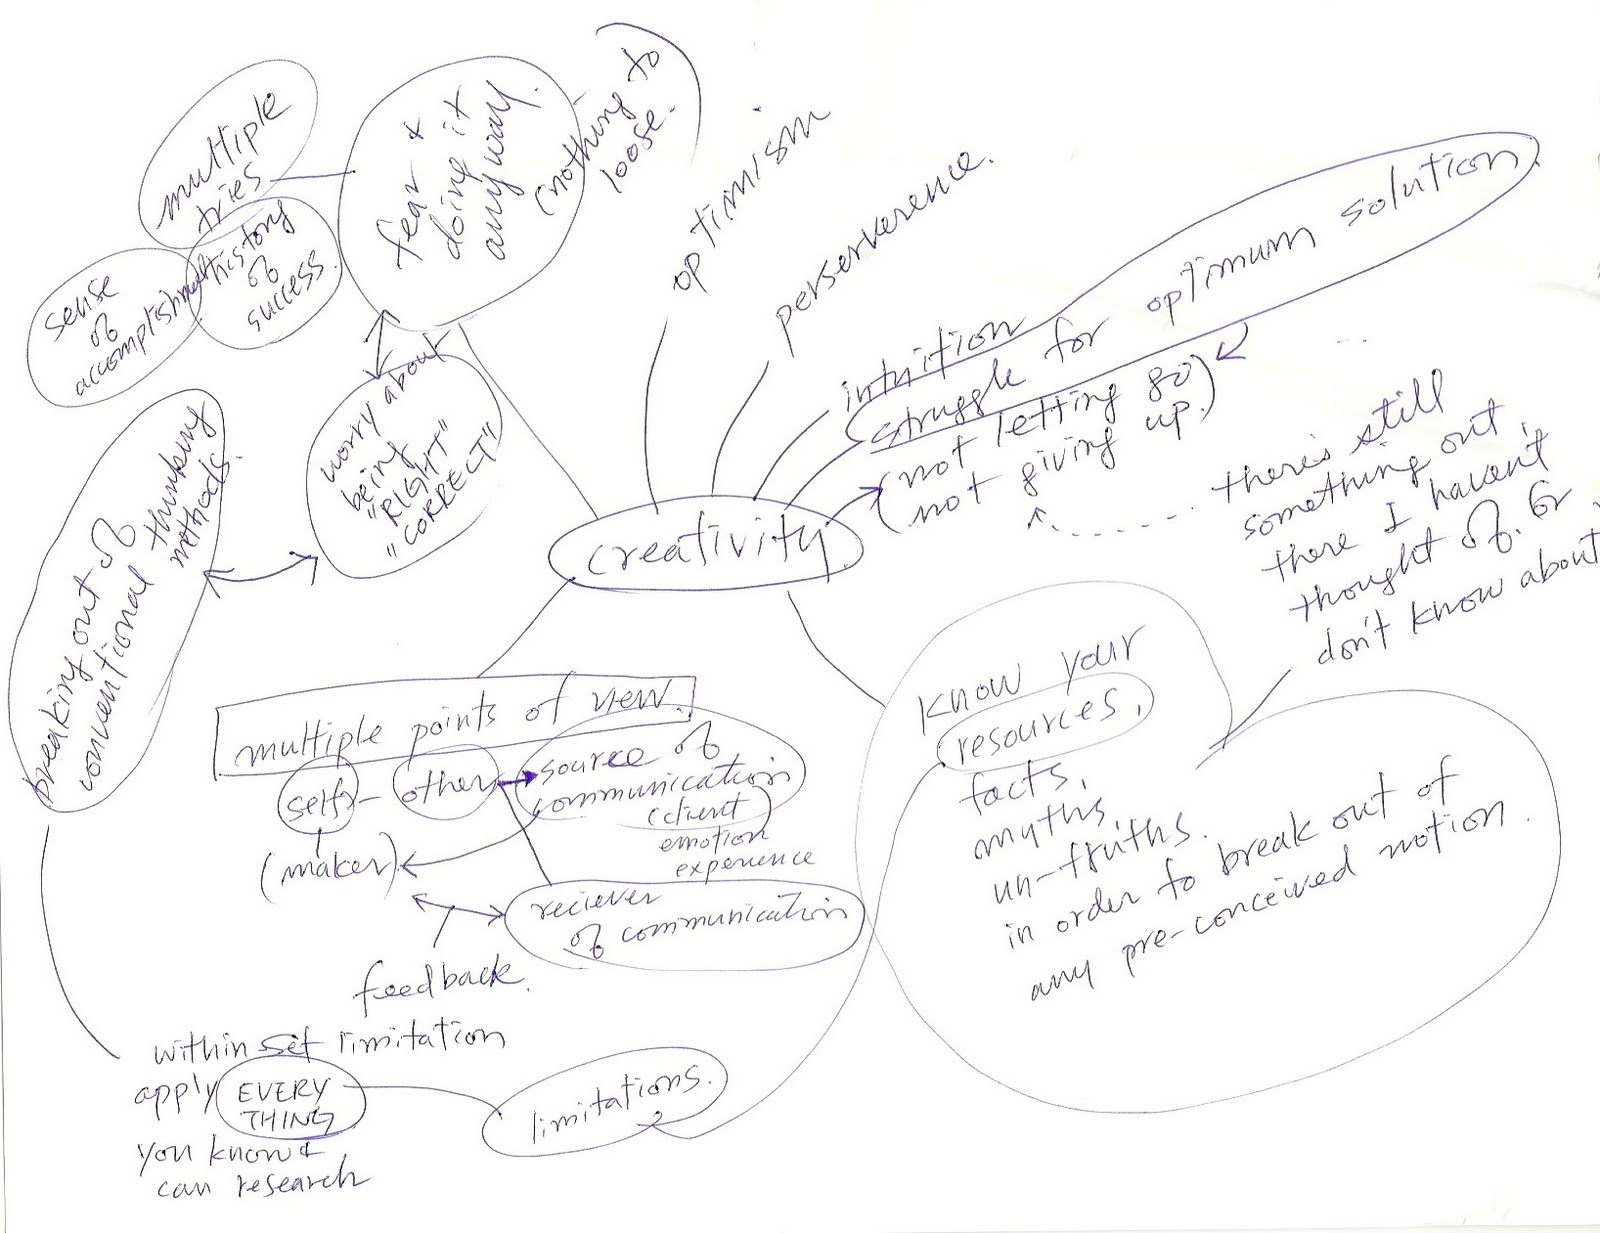 multiple
tries
history
of
success.
sense
of
accomplishment
fear &
doing it
any way.
(nothing to
loose.)
optimism
perserverence.
intuition
struggle for optimum solution
(not letting go
not giving up.)
there's still
something out
there I haven't
thought of. or
don't know about
worry about
being
"RIGHT"
"CORRECT"
breaking out of
conventional thinking
methods.
creativity
multiple points of view.
self - other
source of
communication
(client)
emotion
experience
(maker)
reciever
of communication
feedback.
know your
resources,
facts,
myths,
un-truths.
in order to break out of
any pre-conceived notion.
within set limitation
apply EVERY
THING
you know &
can research
limitations.